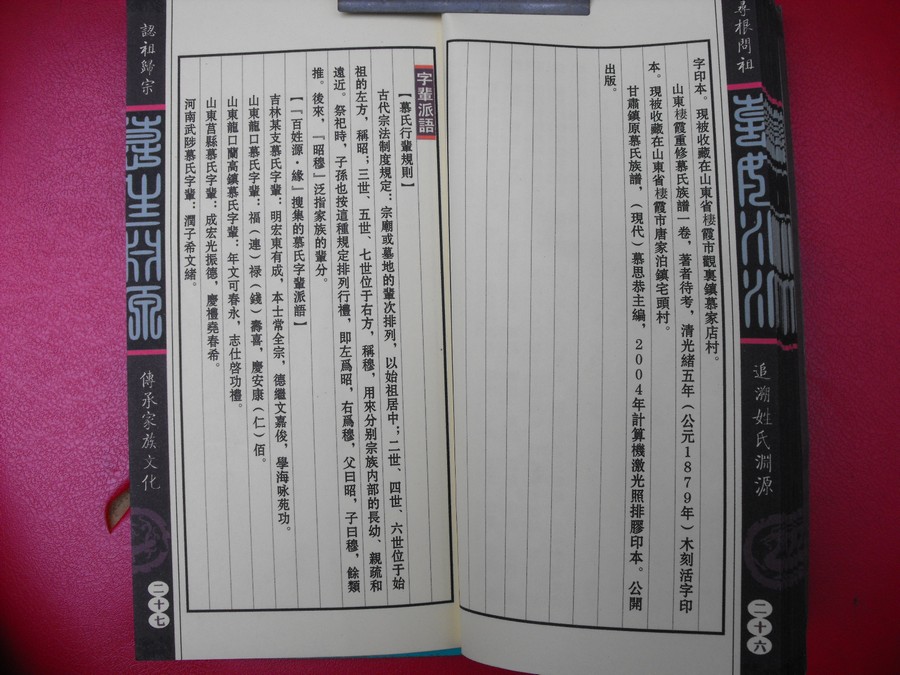 尋根問祖
追溯姓氏淵源
二十六
字印本。現被收藏在山東省棲霞市觀裏鎮慕家店村。
山東棲霞重修慕氏族譜一卷，著者待考，清光緒五年（公元1879年）木刻活字印
本。現被收藏在山東省棲霞市唐家泊鎮宅頭村。
甘肅鎮原慕氏族譜，（現代）慕思恭主編，2004年計算機激光照排膠印本。公開
出版。
字輩派語
【慕氏行輩規則】
古代宗法制度規定：宗廟或墓地的輩次排列，以始祖居中；二世、四世、六世位于始
祖的左方，稱昭；三世、五世、七世位于右方，稱穆，用來分别宗族内部的長幼、親疏和
遠近。祭祀時，子孫也按這種規定排列行禮，即左爲昭，右爲穆，父曰昭，子曰穆，餘類
推。後來，『昭穆』泛指家族的輩分。
【『百姓源·緣』搜集的慕氏字輩派語】
吉林某支慕氏字輩：明宏東有成，本士常全宗，德繼文嘉俊，學海咏苑功。
山東龍口慕氏字輩：福（連）禄（錢）壽喜，慶安康（仁）佰。
山東龍口蘭高鎮慕氏字輩：年文可春永，志仕啓功禮。
山東莒縣慕氏字輩：成宏光振德，慶禮堯春希。
河南武陟慕氏字輩：潤子希文緒。
認祖歸宗
傳承家族文化
二十七